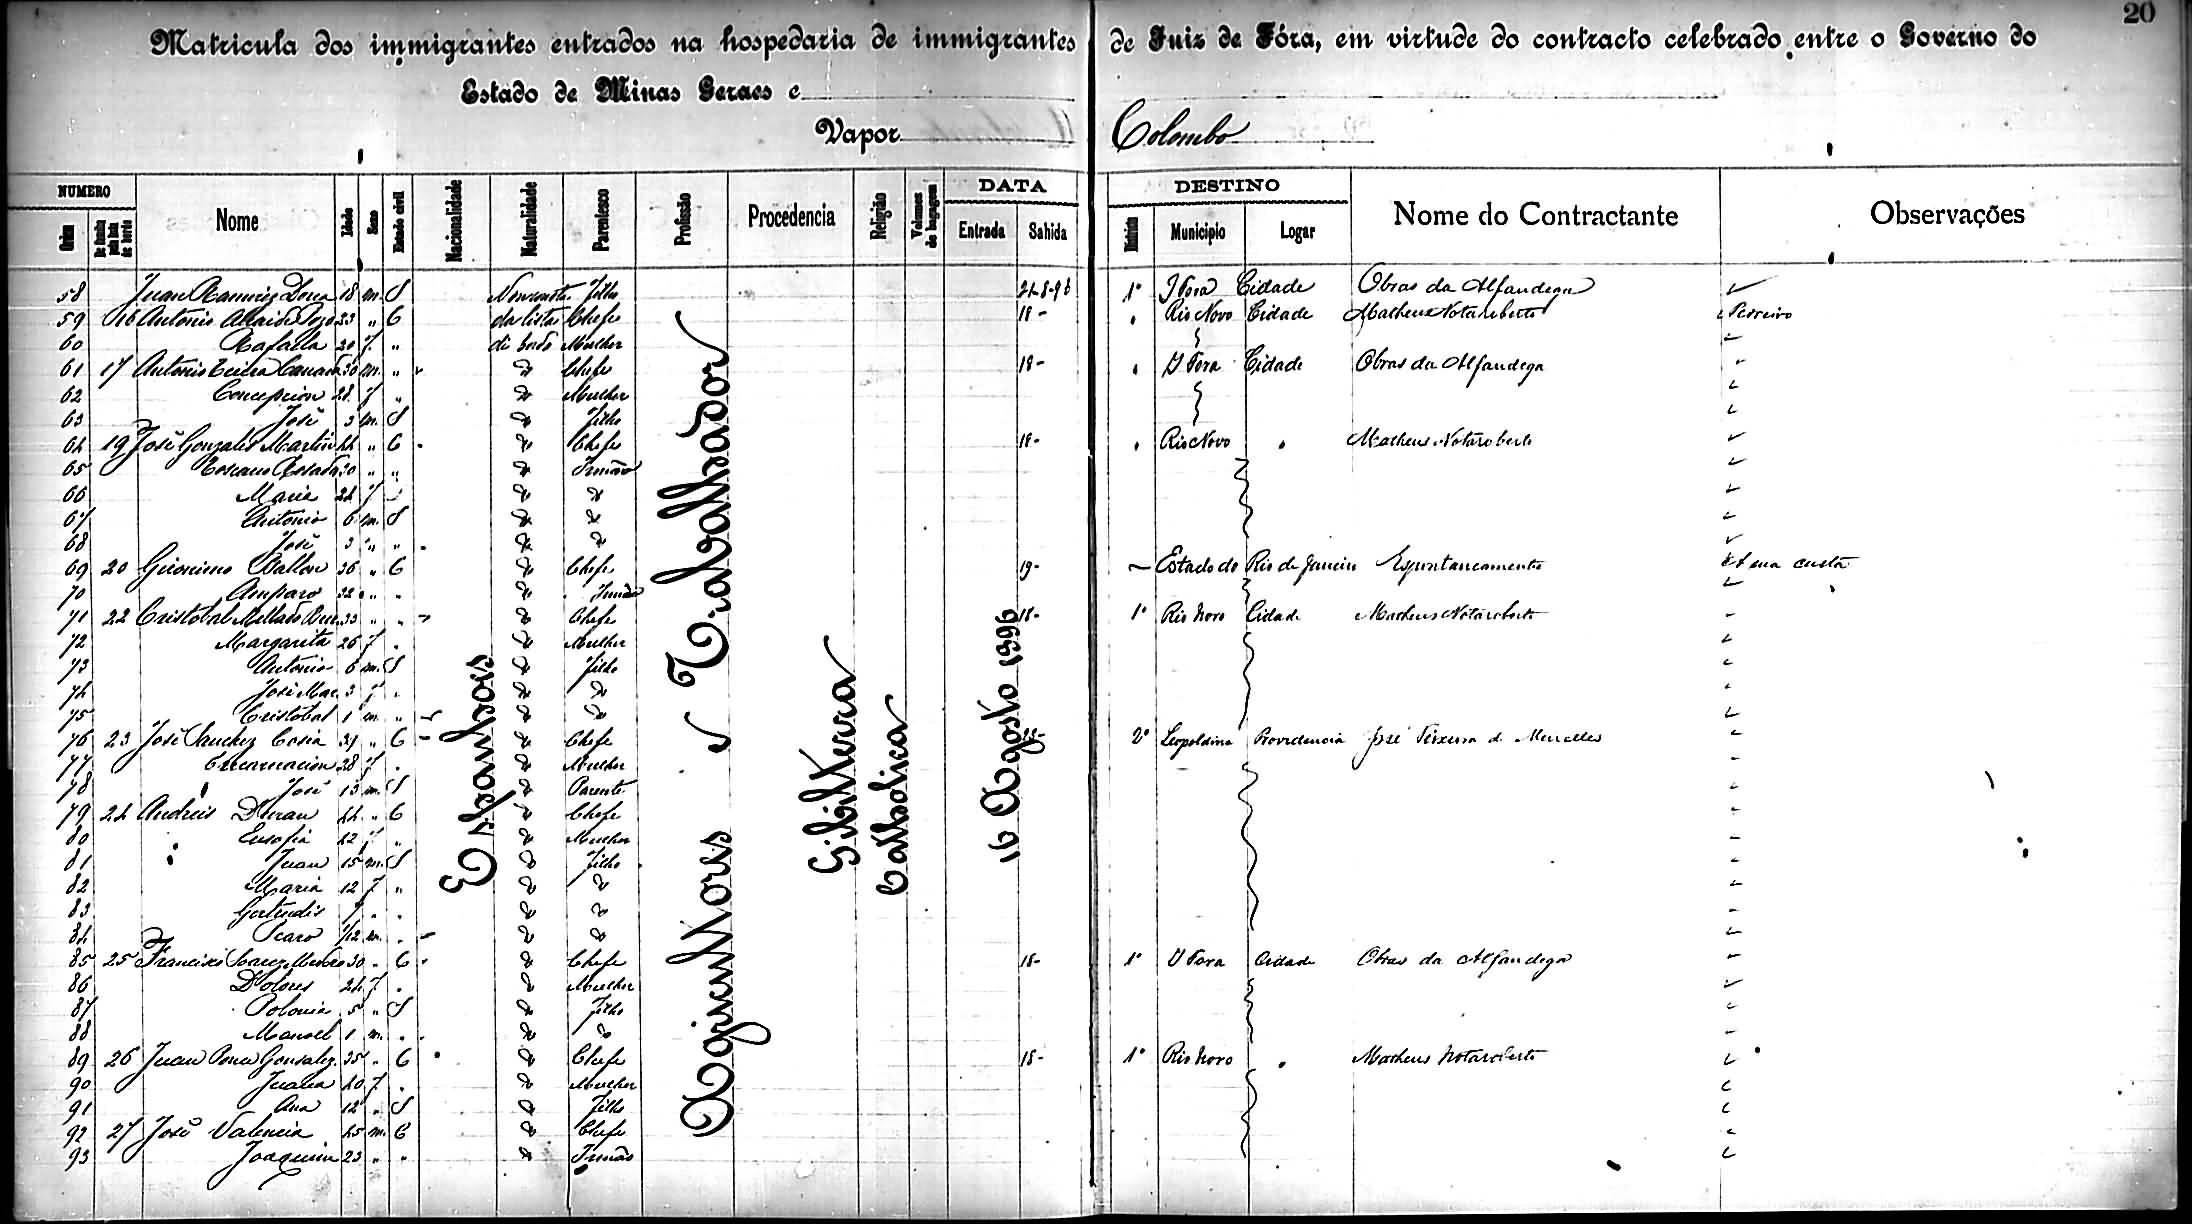 20
Matricula dos immigrantes entrados na hospedaria de immigrantes de Juiz de Fóra, em virtude do contracto celebrado entre o Governo do
Estado de Minas Geraes e
Vapor Colombo
NUMERO DATA DESTINO
Ordem Nome Idade Sexo Estado civil Nacionalidade Naturalidade Parentesco Profissão Procedencia Religião Volumes de bagagem Entrada Sahida Districto Municipio Logar Nome do Contractante Observações
Espanhoes
Agricultores e Trabalhador
Gibilterra
Catholica
16 Agosto 1896
58 Juan Ramirez 18 m. S Filho 21-8-96 1º J Fora Cidade Obras da Alfandega
59 16 Antonio 23 " C da lista Chefe 18- Rio Novo Cidade Matheus Notaroberto Pedreiro
60 Rafaela 20 f. " de bordo Mulher
61 17 Antonio 30 m. " Chefe 18- J Fora Cidade Obras da Alfandega
62 Concepcion 28 f "
 Mulher
63 José 3 m. S Filho
64 19 José Gonzales Martin 44 " C Chefe 18- Rio Novo Matheus Notaroberto
65 30 " " Irmão
66 Maria 24 f
67 Antonio 6 m. S
68 José 3 " "
69 20 Gironimo 36 " C Chefe 19- Estado do Rio de Janeiro Espontaneamente A sua custa
70 Amparo 32 " Irmão
71 22 Cristobal 33 " " Chefe 18- 1º Rio Novo Cidade Matheus Notaroberto
72 Margarita 26 f. Mulher
73 Antonio 6 m. S Filho
74 José Mar. 3 f.
75 Cristobal 1 m. "
76 23 José Sanchez 39 " C Chefe 2º Leopoldina Providencia José Teixeira de Meirelles
77 Encarnacion 28 f. Mulher
78 José 13 m. S Parente
79 24 Andreis Duran 44 " C Chefe
80 42 f. " Mulher
81 Juan 15 m. S Filho
82 Maria 12 f "
83 Gertrudis 7
84 m.
85 25 Francisco 30 " C Chefe 18- 1º J Fora Cidade Obras da Alfandega
86 Dolores 24 f. Mulher
87 Polonia 5 " S Filho
88 Manoel 1 m.
89 26 Juan Gonsalez 35 " C Chefe 18- 1º Rio Novo Matheus Notaroberto
90 Juana 40 f. Mulher
91 Ana 12 " S Filho
92 27 José Valencia 45 m. C Chefe
93 Joaquim 23 " " Irmão